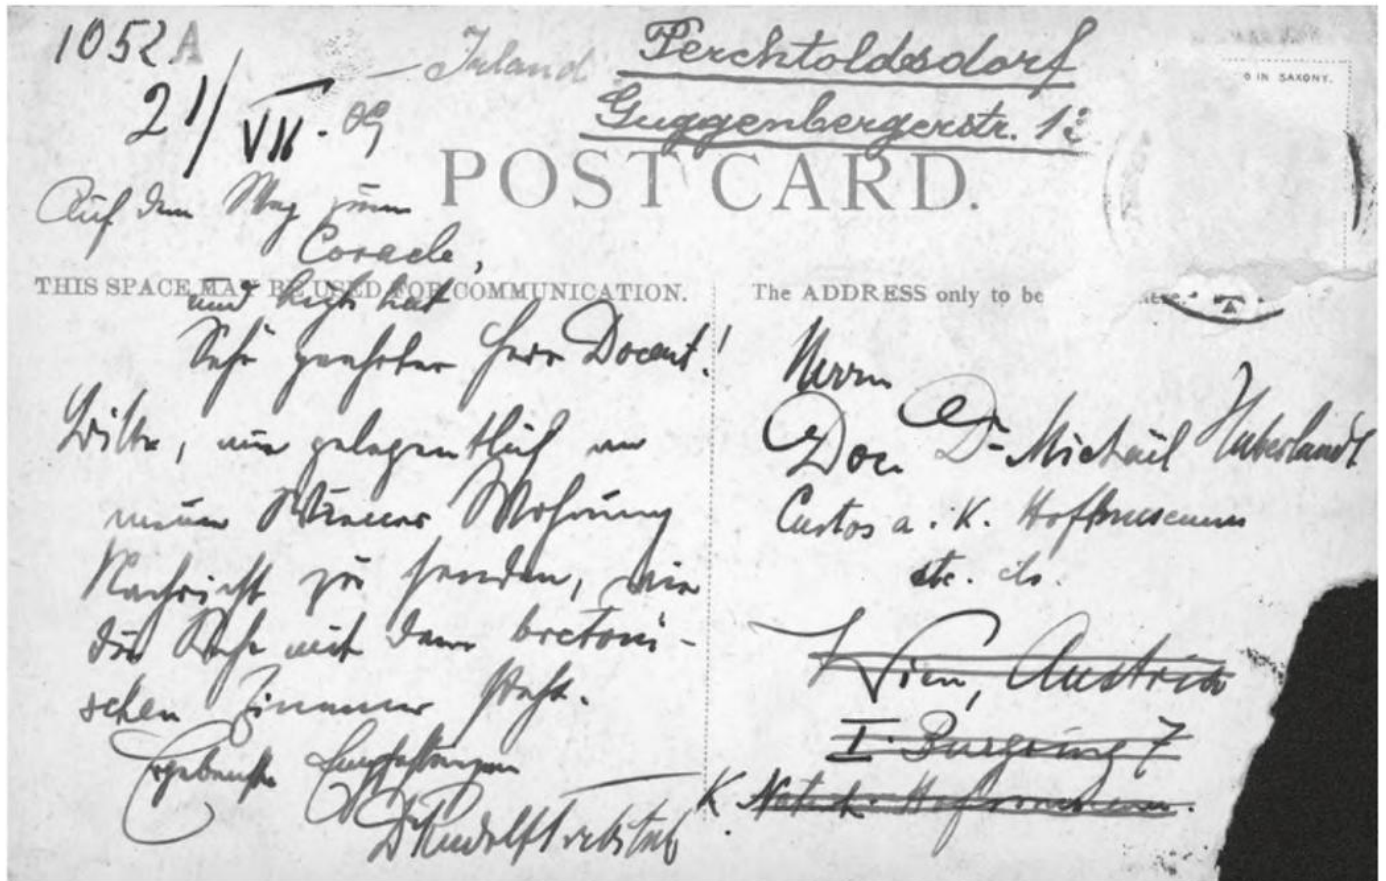 1052 A
21/VII. 09
Irland
Perchtoldsdorf
Guggenbergerstr. 12
D IN SAXONY.
POST CARD.
Auf dem Weg zum
Coracle,
THIS SPACE MAY BE USED FOR COMMUNICATION.
und
The ADDRESS only to be
Sehr geehrter Herr Docent!
Bitte, mir gelegentlich an
meine Wiener Wohnung
Nachricht zu senden, wie
die Sache mit dem bretoni-
schen Zimmer steht.
Ergebenste Empfehlungen
Dr Rudolf Trebitsch
Herrn
Doc. Dr. Michael Haberlandt
Custos a. K. Hofmuseum
etc. etc.
Wien, Austria
I. Burgring 7
K. Naturh. Hofmuseum.